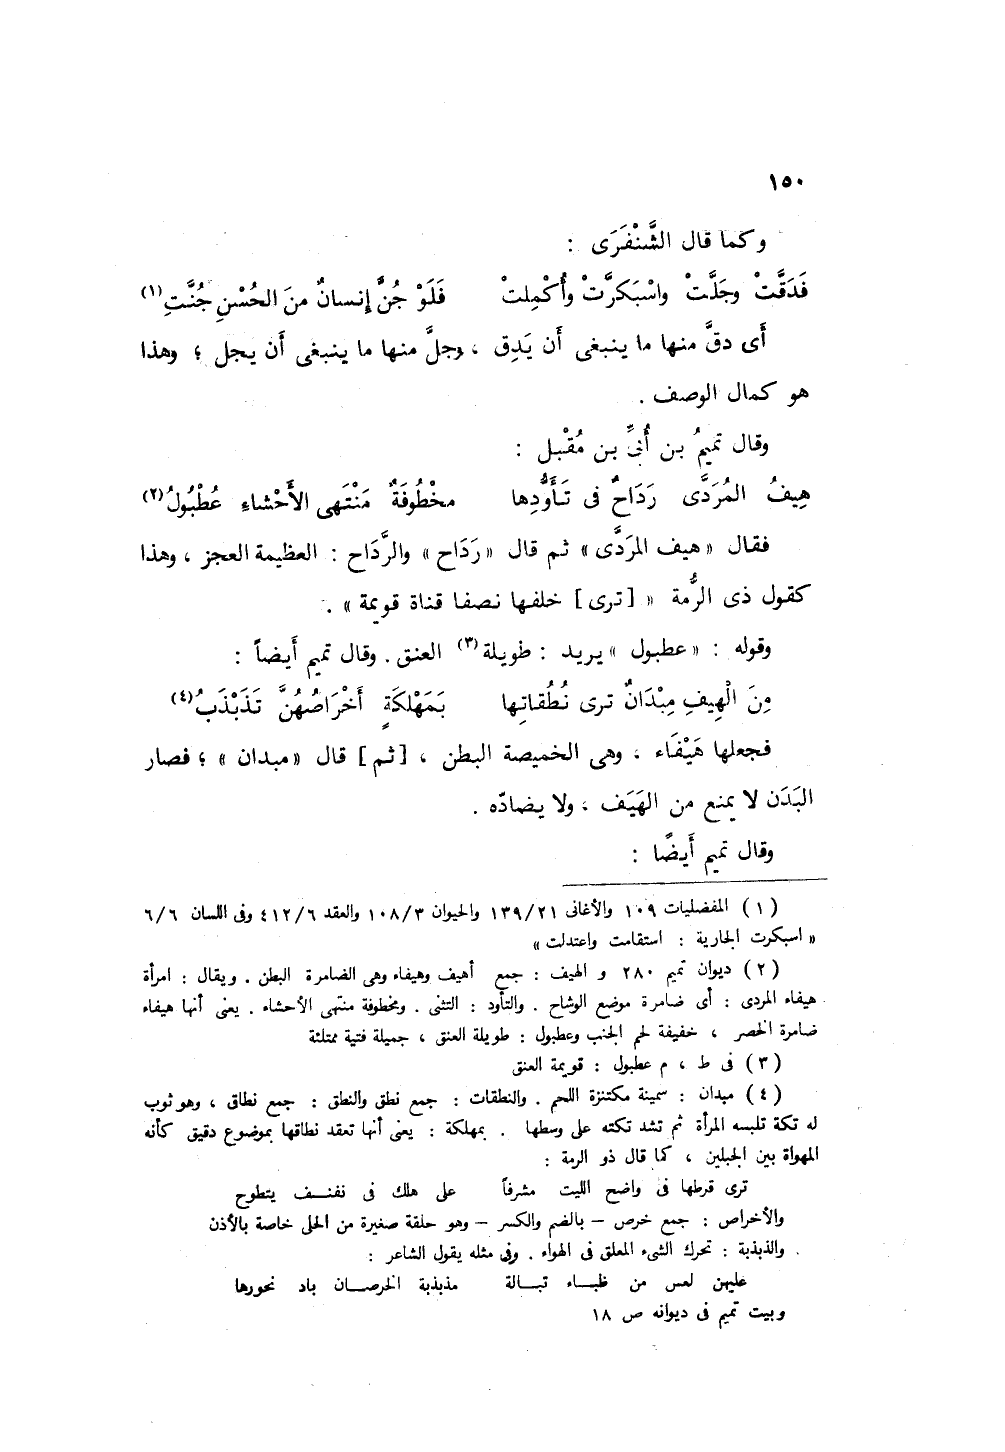 ١٥٠
وكما قال الشَّنْفَرَى :
فَدَقَّتْ وجَلَّتْ واسْبَكرَّتْ وأُكْمِلتْ فَلَوْ جُنَّ إِنسانٌ منَ الحُسْنِ جُنَّتِ(١)
أَى دقَّ منها ما ينبغى أَن يَدِق ، وجلَّ منها ما ينبغى أَن يجل ؛ وهذا
هو كمال الوصف .
وقال تميمُ بن أُبىِّ بن مُقْبل :
هِيفُ المُرَدَّى رَدَاحٌ فى تَأَوُّدِها مخْطُوفَةٌ مَنْتَهى الأَحْشاءِ عُطْبُولُ(٢)
فقال « هيف المرَدَّى » ثم قال « رَدَاح » والرَّدَاح : العظيمة العجز ، وهذا
كقول ذى الرُّمة « [ترى] خلفها نصفا قناة قويمة » .
وقوله : « عطبول » يريد : طويلة(٣) العنق . وقال تميم أَيضاً :
مِنَ الْهِيفِ مِبْدَانٌ ترى نُطُقاتِها بَمَهْلكَةٍ أَخْرَاصُهُنَّ تَذَبْذَبُ(٤)
فجعلها هَيْفَاء ، وهى الخميصة البطن ، [ثم] قال « مبدان » ؛ فصار
البَدَن لا يمنع من الهَيَف ، ولا يضادّه .
وقال تميم أَيضًا :
(١) المفضليات ١٠٩ والأغانى ١٣٩/٢١ والحيوان ١٠٨/٣ والعقد ٤١٢/٦ وفى اللسان ٦/٦
« اسبكرت الجارية : استقامت واعتدلت »
(٢) ديوان تميم ٢٨٠ و الهيف : جمع أهيف وهيفاء وهى الضامرة البطن . ويقال : امرأة
هيفاء المردى : أى ضامرة موضع الوشاح . والتأود : التثنى . ومخطوفة منتهى الأحشاء . يعنى أنها هيفاء
ضامرة الخصر ، خفيفة لحم الجنب وعطبول : طويلة العنق ، جميلة فتية ممتلئة
(٣) فى ط ، م عطبول : قويمة العنق
(٤) مبدان : سمينة مكتنزة اللحم . والنطقات : جمع نطق والنطق : جمع نطاق ، وهو ثوب
له تكة تلبسه المرأة ثم تشد تكته على وسطها . بمهلكة : يعنى أنها تعقد نطاقها بموضوع دقيق كأنه
المهواة بين الجبلين ، كما قال ذو الرمة :
ترى قرطها فى واضح الليت مشرفاً على هلك فى نفنــف يتطوح
والأخراص : جمع خرص – بالضم والكسر – وهو حلقة صغيرة من الحلى خاصة بالأذن
والذبذبة : تحرك الشىء المعلق فى الهواء . وفى مثله يقول الشاعر :
عليهن لعس من ظبـاء تبـالة مذبذبة الخرصـان باد نحورها
وبيت تميم فى ديوانه ص ١٨